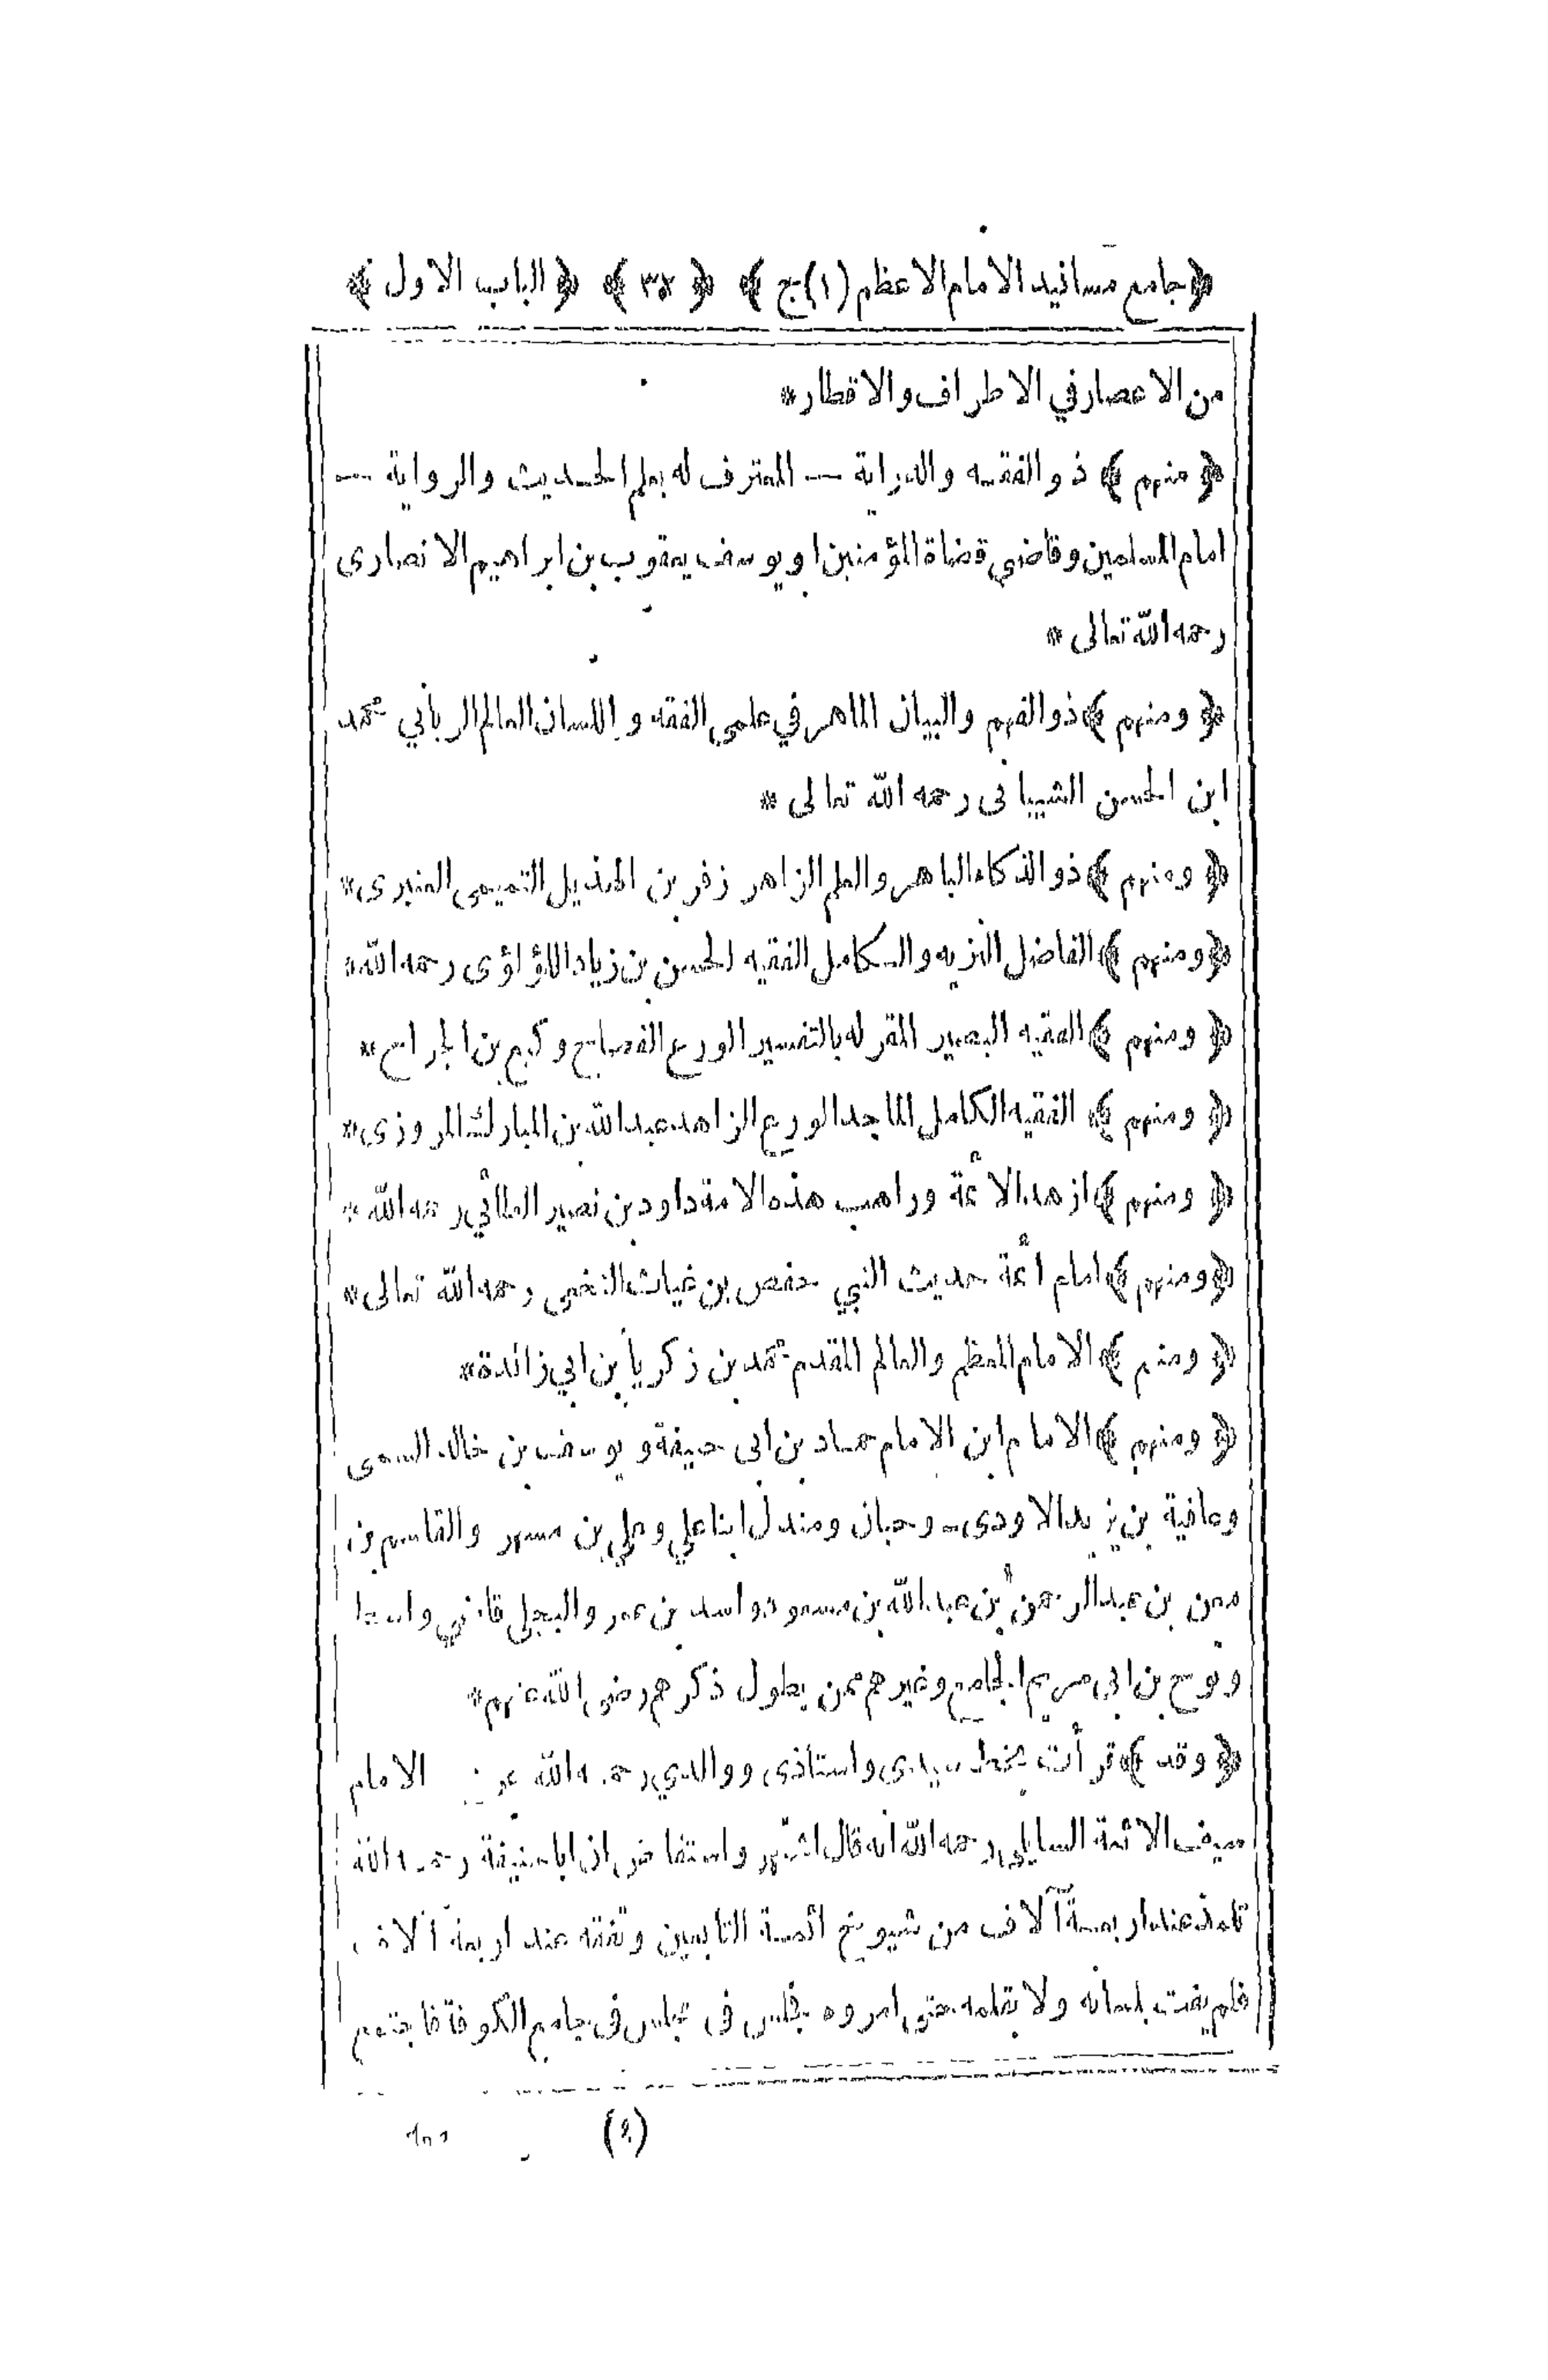 ﴿جامع مسانيد الامام الاعظم (١) ج﴾ ﴿ ﴾ ﴿الباب الاول﴾
من الاعصار في الاطراف والاقطار*
﴿منهم﴾ ذو الفقه والدراية — المعترف له بعلم الحديث والرواية —
امام المسلمين وقاضي قضاة المؤمنين ابو يوسف يعقوب بن ابراهيم الانصارى
رحمه الله تعالى *
﴿ومنهم﴾ ذو الفهم والبيان الماهر في علمي الفقه واللسان العالم الرباني محمد
ابن الحسن الشيبانى رحمه الله تعالى *
﴿ومنهم﴾ ذو الذكاء الباهر والعلم الزاهر زفر بن الهذيل التميمى العنبرى*
﴿ومنهم﴾ الفاضل النزيه والكامل الفقيه الحسن بن زياد اللؤلؤى رحمه الله*
﴿ومنهم﴾ الفقيه البصير المقر له بالتفسير الورع الفصايح وكيع بن الجراح*
﴿ومنهم﴾ الفقيه الكامل الماجد الورع الزاهد عبد الله بن المبارك المروزى*
﴿ومنهم﴾ ازهد الائمة وراهب هذه الامة داود بن نصير الطائي رحمه الله*
﴿ومنهم﴾ امام ائمة حديث النبي حفص بن غياث النخعى رحمه الله تعالى*
﴿ومنهم﴾ الامام المعظم والعالم المقدم محمد بن زكريا بن ابي زائدة*
﴿ومنهم﴾ الامام ابن الامام حماد بن ابى حنيفة ويوسف بن خالد السمتى
وعافية بن يزيد الاودى - وحبان ومندل ابنا علي وعلي بن مسهر والقاسم بن
معن بن عبد الرحمن بن عبد الله بن مسعود واسد بن عمر والبجلي قاضي واسط
ونوح بن ابي مريم الجامع وغيرهم ممن يطول ذكرهم رضى الله عنهم*
﴿وقد﴾ قرأت بخط سيدى واستاذى ووالدي رحمه الله عن الامام
سيف الائمة السايلي رحمه الله انه قال اشتهر واستفاض ان ابا حنيفة رحمه الله
تلمذ عند اربعة آلاف من شيوخ ائمة التابعين وتفقه عند اربعة آلاف
فلم يفت بلسانه ولا بقلمه حتى امروه فجلس فى مجلس فى جامع الكوفة فاجتمع
(٤)